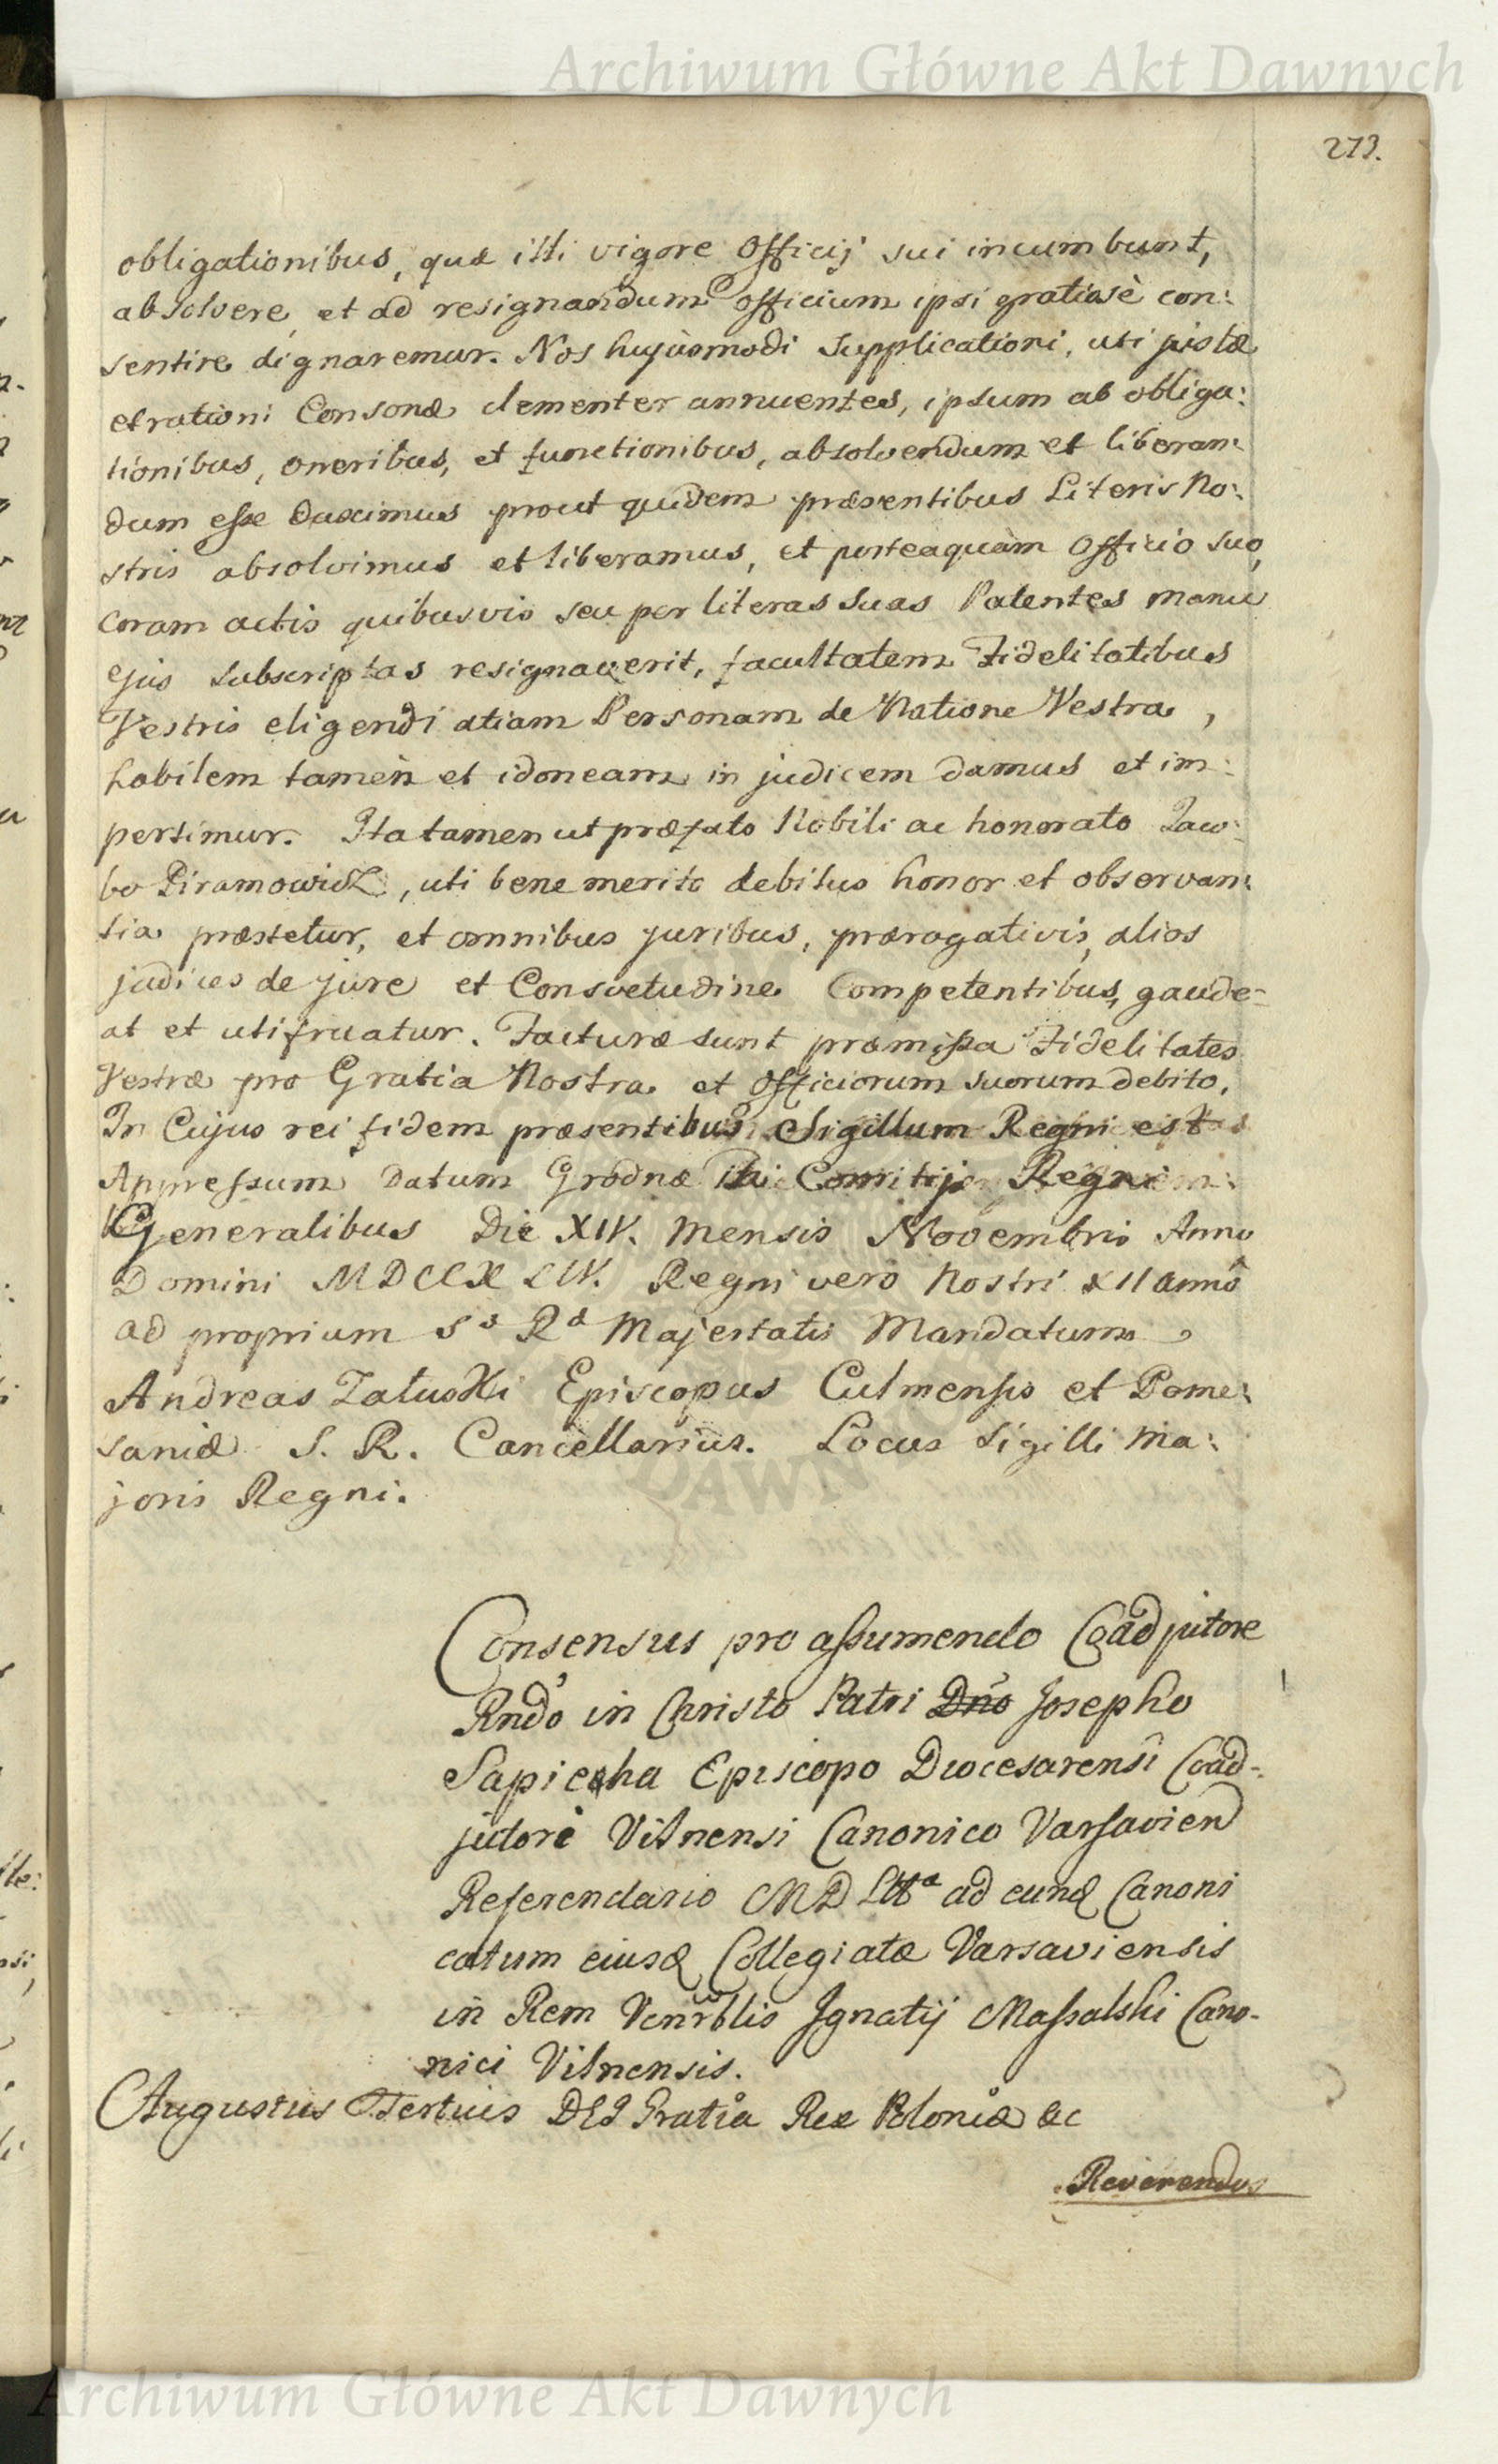 Archiwum Główne Akt Dawnych
273.
obligationibus, quæ illi vigore Officij sui incumbunt,
absolvere, et ad resignandum officium ipsi gratiosè con:
sentire dignaremur. Nos hujusmodi Supplicationi, uti justæ
et rationi Consonæ clementer annuentes, ipsum ab obliga:
tionibus, oneribus, et functionibus, absolvendum et liberan:
dum esse duximus prout quidem præsentibus Literis No:
stris absolvimus et liberamus, et posteaquam Officio suo,
coram actis quibusvis seu per literas suas Patentes manu
ejus subscriptas resignaverit, facultatem Fidelitatibus
Vestris eligendi aliam Personam de Natione Vestra,
habilem tamen et idoneam in judicem damus et im:
pertimur. Ita tamen ut præfato Nobili ac honorato Jaco:
bo Piramowicz, uti bene merito debitus honor et observan:
tia præstetur, et omnibus juribus, prærogativis, alios
judices de jure et Consvetudine Competentibus, gaude=
at et utifruatur. Facturæ sunt præmissa Fidelitates
Vestræ pro Gratia Nostra et Officiorum suorum debito.
In Cujus rei fidem præsentibus Sigillum Regni est
Appressum Datum Grodnæ in Comitijs Regni
Generalibus Die XIV. Mensis Novembris Anno
Domini MDCCXLIV. Regni vero Nostri XII anno
ad proprium Sæ Ræ Majestatis Mandatum
Andreas Załuski Episcopus Culmensis et Pome:
saniæ S. R. Cancellarius. Locus Sigilli Ma:
joris Regni.
Consensus pro assumendo Coadjutore
Rndo in Christo Patri Dno Josepho
Sapieha Episcopo Diocesarensi Coad-
jutori Vilnensi Canonico Varsavien
Referendario MD Litt ad eund Canoni
catum eiusd Collegiatæ Varsaviensis
in Rem Venrblis Ignatij Massalski Cano-
nici Vilnensis.
Augustus Tertius DEI Gratia Rex Poloniæ &c
Reverendus
Archiwum Główne Akt Dawnych